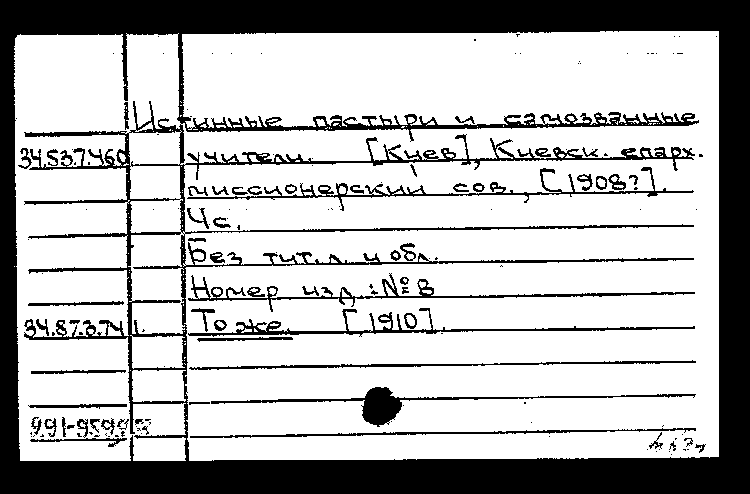 Истинные пастыри и самозванные
34.53.7.460 учители. [Киев], Киевск. епарх.
миссионерский сов., [1908?].
4 с.
Без тит. л. и обл.
Номер изд.: № 8
34.87.3.74 1. То же. [1910].